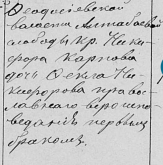 Феодосіевской
волости Митавской
слободы кр. Ники-
фора Карпова
дочь Фекла Ни-
кифорова право-
славнаго вероиспо-
веданія первымъ
бракомъ.